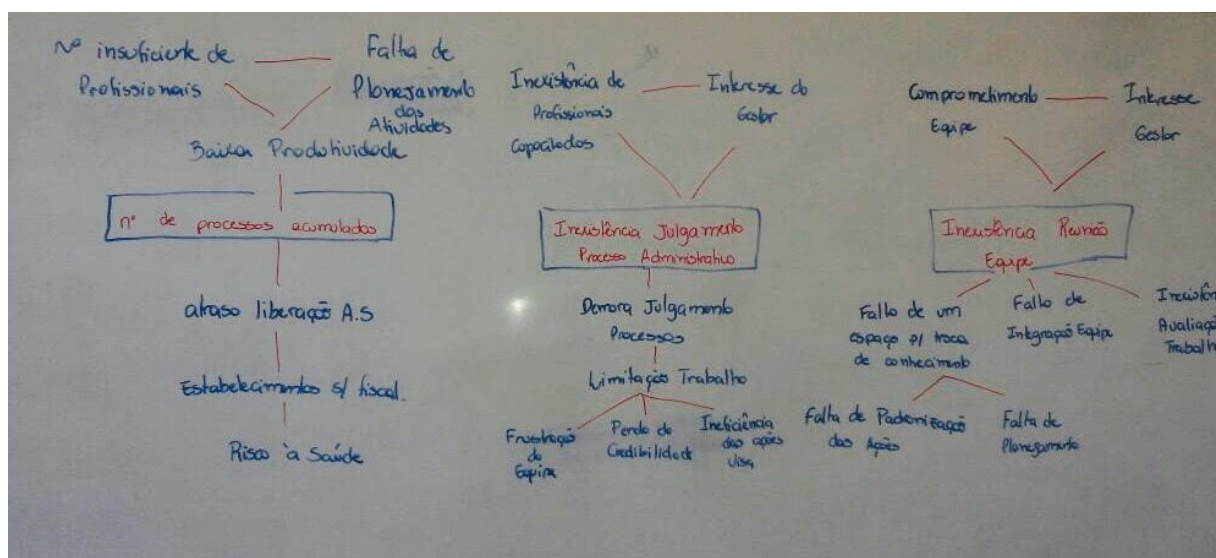 Nº insuficiente de
Profissionais
Falta de
Planejamento
das
Atividades
Baixa Produtividade
nº de processos acumulados
atraso liberação A.S
Estabelecimentos s/ fiscal.
Risco à Saúde
Inexistência de
Profissionais
Capacitados
Interesse do
Gestor
Inexistência Julgamento
Processo Administrativo
Demora Julgamento
Processos
Limitação Trabalho
Frustração
da
Equipe
Perda de
Credibilidade
Ineficiência
das ações
Visa
Comprometimento
Equipe
Interesse
Gestor
Inexistência Reunião
Equipe
Falta de um
espaço p/ troca
de conhecimento
Falta de
Integração Equipe
Inexistên
Avaliaçã
Trabalh
Falta de Padronização
das Ações
Falta de
Planejamento